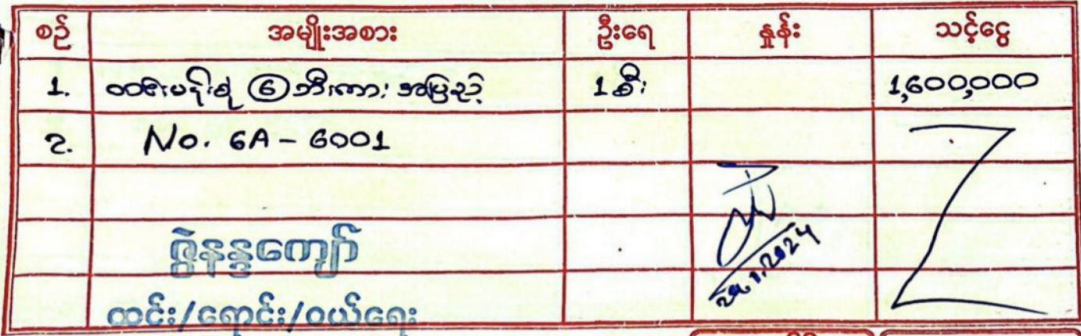 စဉ် အမျိုးအစား ဦးရေ နှုန်း သင့်ငွေ
1. ထင်းမန်းစု ⑥ဘီးကား အပြည့် 1 စီး 1,600,000
2. No. 6A - 6001
ဇွဲနန္ဒကျော်
ထင်း/ရောင်း/ဝယ်ရေး